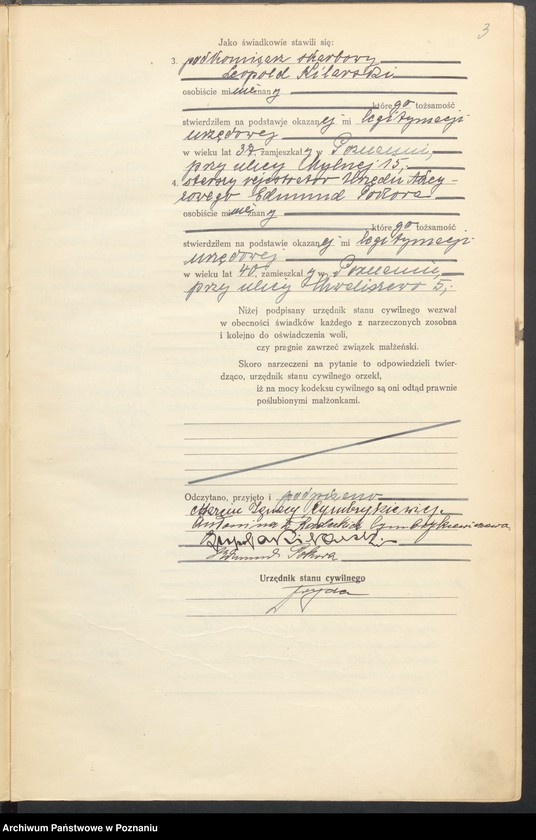 3
Jako świadkowie stawili się:
3. podkomisarz skarbowy
Leopold Kilarski
osobiście mi nieznany
którego tożsamość
stwierdziłem na podstawie okazanej mi legitymacji
urzędowej
w wieku lat 37, zamieszkały w Poznaniu,
przy ulicy Mylnej 15,
4. starszy rejestrator Urzędu Akcy-
zowego Edmund
osobiście mi nieznany
którego tożsamość
stwierdziłem na podstawie okazanej mi legitymacji
urzędowej
w wieku lat 40, zamieszkały w Poznaniu,
przy ulicy Chwaliszewo 5,
Niżej podpisany urzędnik stanu cywilnego wezwał
w obecności świadków każdego z narzeczonych zosobna
i kolejno do oświadczenia woli,
czy pragnie zawrzeć związek małżeński.
Skoro narzeczeni na pytanie to odpowiedzieli twier-
dząco, urzędnik stanu cywilnego orzekł,
iż na mocy kodeksu cywilnego są oni odtąd prawnie
poślubionymi małżonkami.
Odczytano, przyjęto i podpisano
Marcin Ignacy Cymbrykiewicz
Antonina z Radeckich Cymbrykiewiczowa
Leopold Kilarski
Edmund
Urzędnik stanu cywilnego
Archiwum Państwowe w Poznaniu